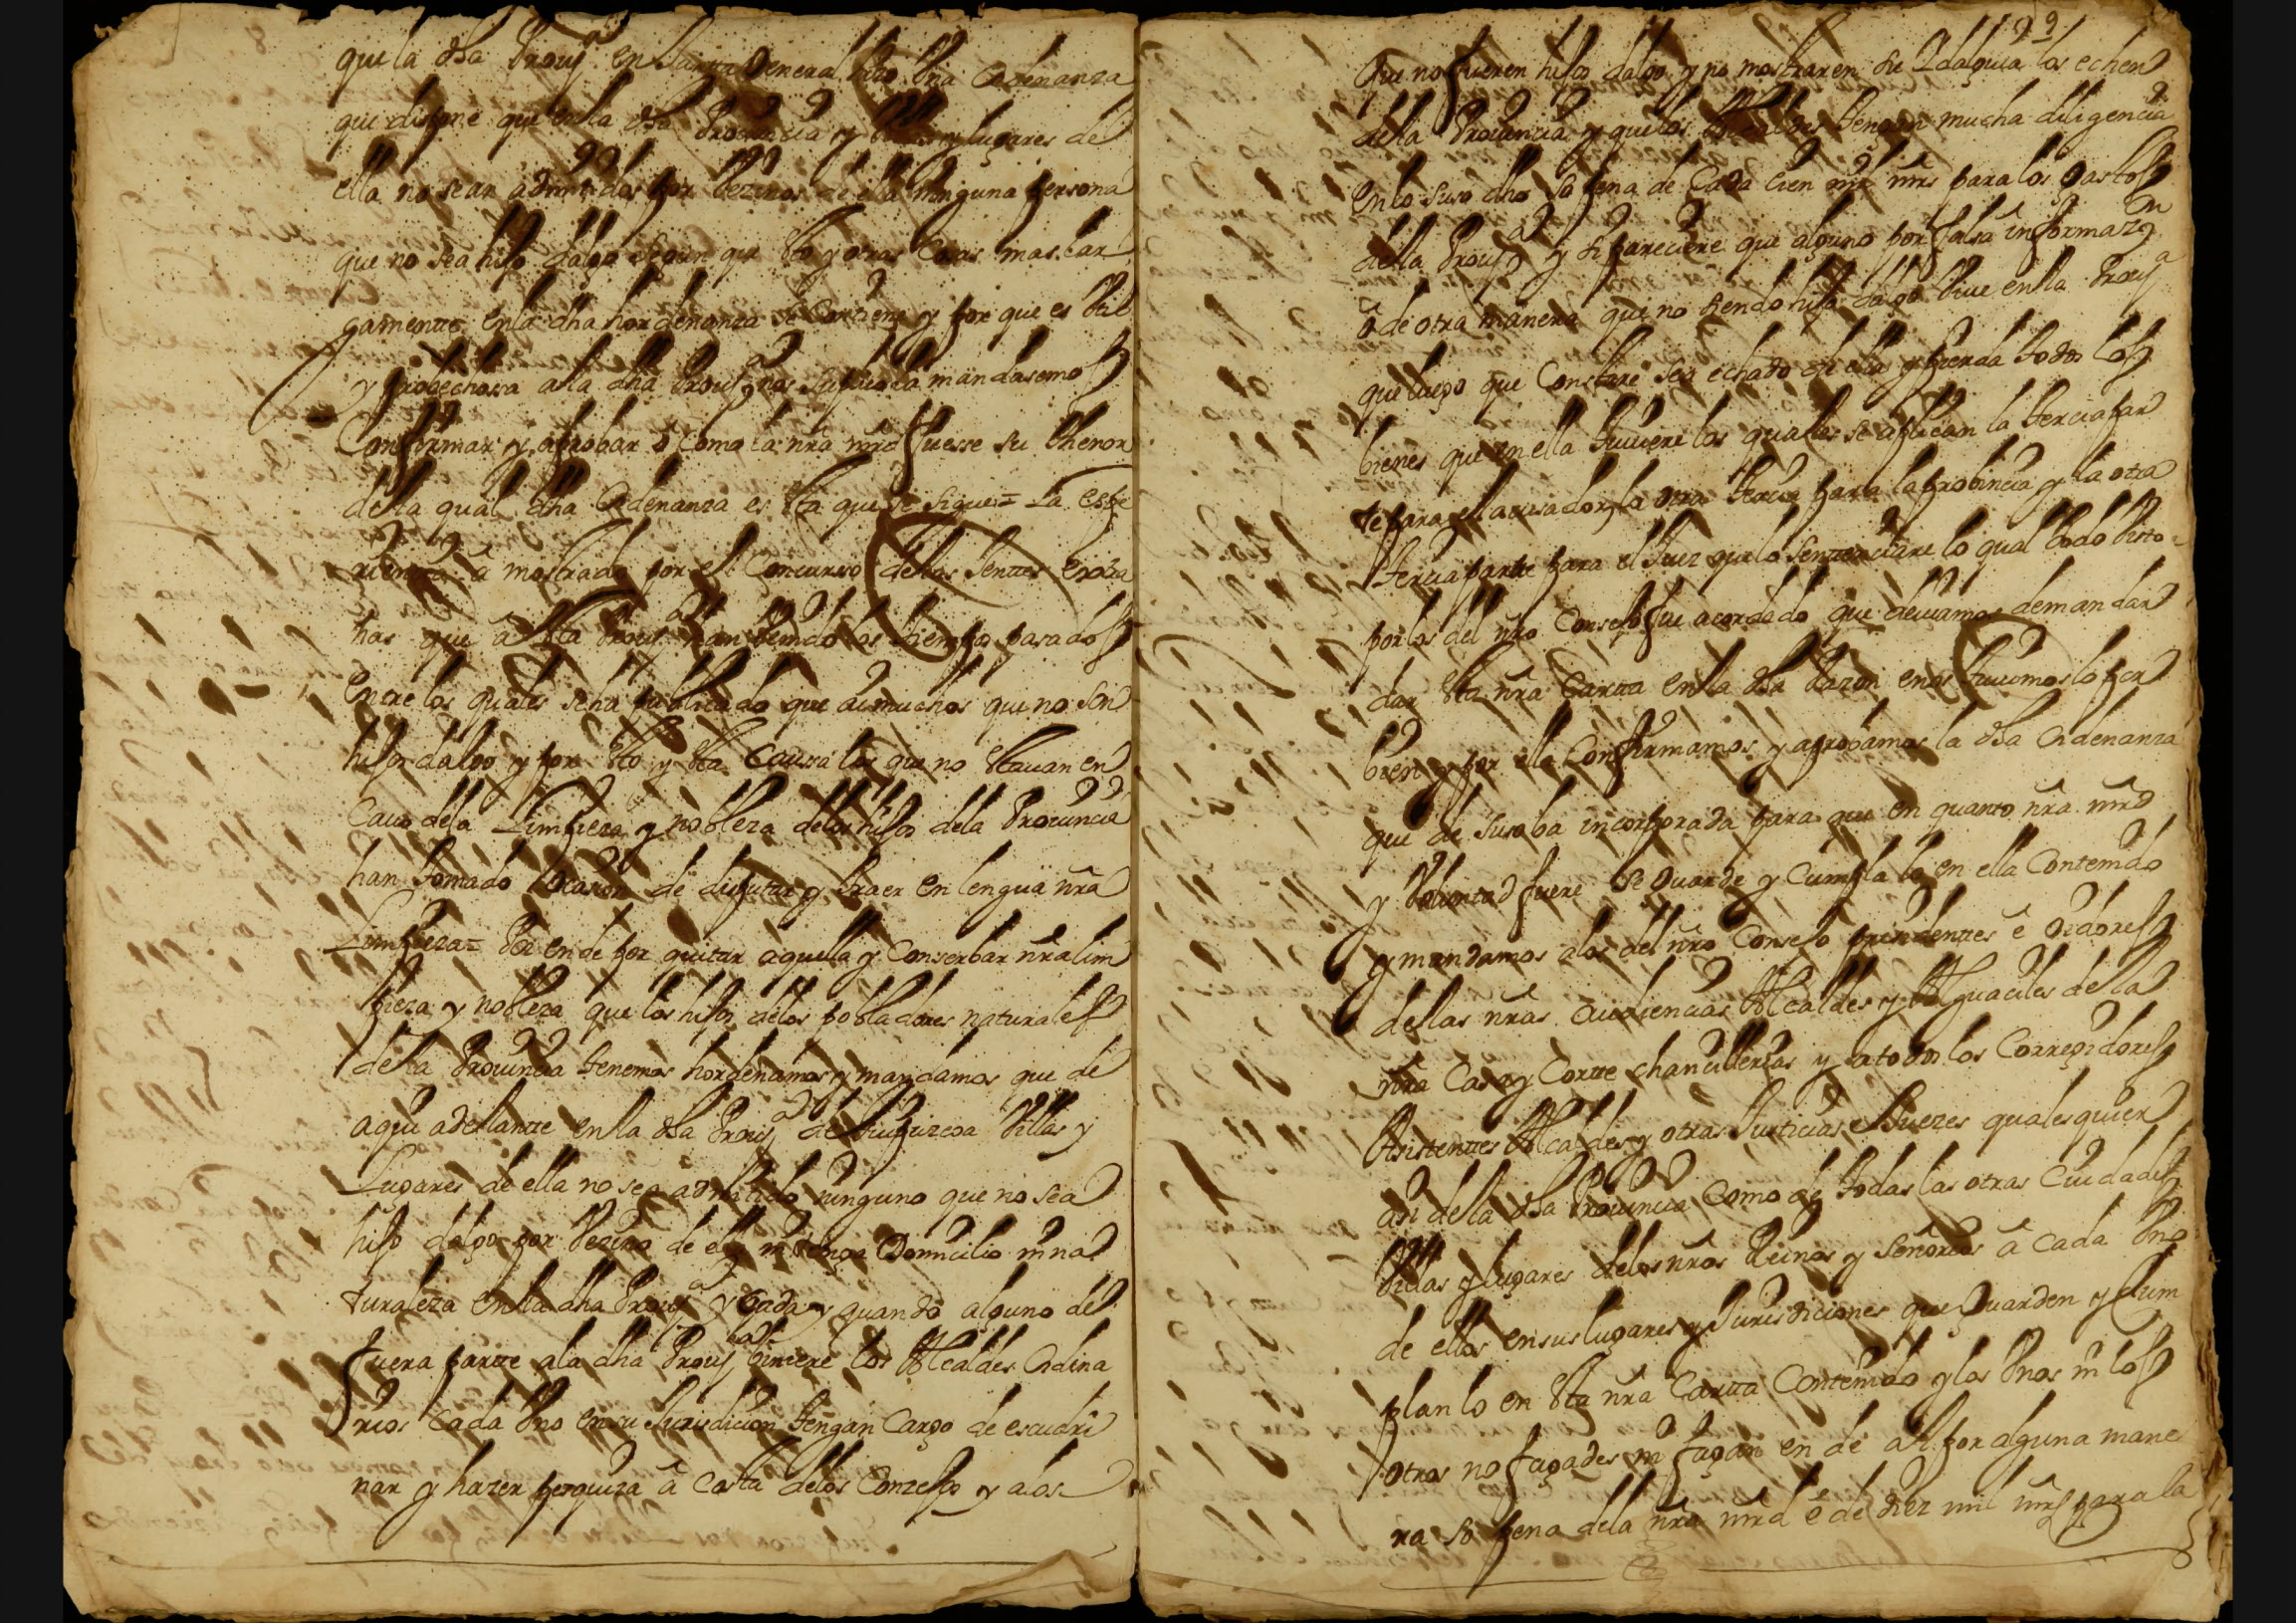 que la dha Prouª en Junta General hizo vna ordenanza
que dispone que en la dha Prouincia y villas y lugares de
ella no sean admitidos por vezinos de ella ninguna persona
que no sea hijo dalgo segun que esto y otras cosas mas lar
gamente en la dha hordenanza se contiene y por que es vtil
y probechosa a la dha Prouª nos suplico la mandasemos
confirmar y aprobar o como la nrã mrd fuesse su thenor
de la qual dha ordenanza es esta que se sigue= La espe
riencia â mostrado por el concurso de las gentes extra
ñas que â esta Prouª han benido los tiempos pasados
entre los quales se ha publicado que ai muchos que no son
hijos dalgo y por esto y esta caussa los que no estauan en
cauo de la Limpieza y nobleza de los hijos de la Prouincia
han tomado ocasion de disputar y traer en lengua nrã
Limpieza= Por ende por quitar aquella y conserbar nrã lim
pieza y nobleza que los hijos de los pobladores naturales
de la Prouincia tenemos hordenamos y mandamos que de
aqui adelante en la dha Prouª de Guipuzcoa villas y
Lugares de ella no sea admitido ninguno que no sea
hijo dalgo por vezino de ella ni tenga Domicilio ni na
turaleza en la dha Prouª y cada y quando alguno de
fuera parte a la dha Prouª biniere los Alcaldes ordina
rios cada vno en su Jurisdicion tengan cargo de escudri
ñar y hazer pesquiza â costa de los Conzejos y a los
9
que no fueren hijos dalgo y no mostraren su Idalguia los echen
de la Prouincia y que los Alcaldes tengan mucha diligencia
en lo suso dho so pena de cada cien mil mrs para los gastos
de la Prouª y si pareciere que alguno por falsa informazon
ô de otra manera que no siendo hijo dalgo viue en la Prouª
que luego que constare sea echado de ella y pierda todos los
bienes que en ella tuuiere los quales se aplican la tercia par
te para el acusador y la otra tercia para la probincia y la otra
tercia parte para el Juez que lo sentenciare lo qual todo visto
por los del nrõ Consejo fue acordado que deuiamos demandar
dar esta nrã Carta en la dha Razon e nos tuuimos lo por
bien y por ella confirmamos y aprobamos la dha ordenanza
que de suso ba incorporada para que en quanto nrã mrd
y voluntad fuere se Guarde y cumpla lo en ella contenido
y mandamos a los del nrõ Consejo presidentes ê oidores
de las nrãs Audiencias Alcaldes y Alguaciles de la
nrã Casa y Corte chancillerias y a todos los Corregidores
Asistentes Alcaldes y otras Justicias e Juezes qualesquier
asi de la dha Prouincia como de todas las otras Ciudades
villas y lugares de los nrõs Reinos y señorios â cada vno
de ellos en sus lugares y Jurisdiciones que Guarden y cum
plan lo en esta nrã Carta contenido y los vnos ni los
otros no fagades ni fagan en de al por alguna mane
ra so pena de la nrã mrd ê de diez mil mrs para la